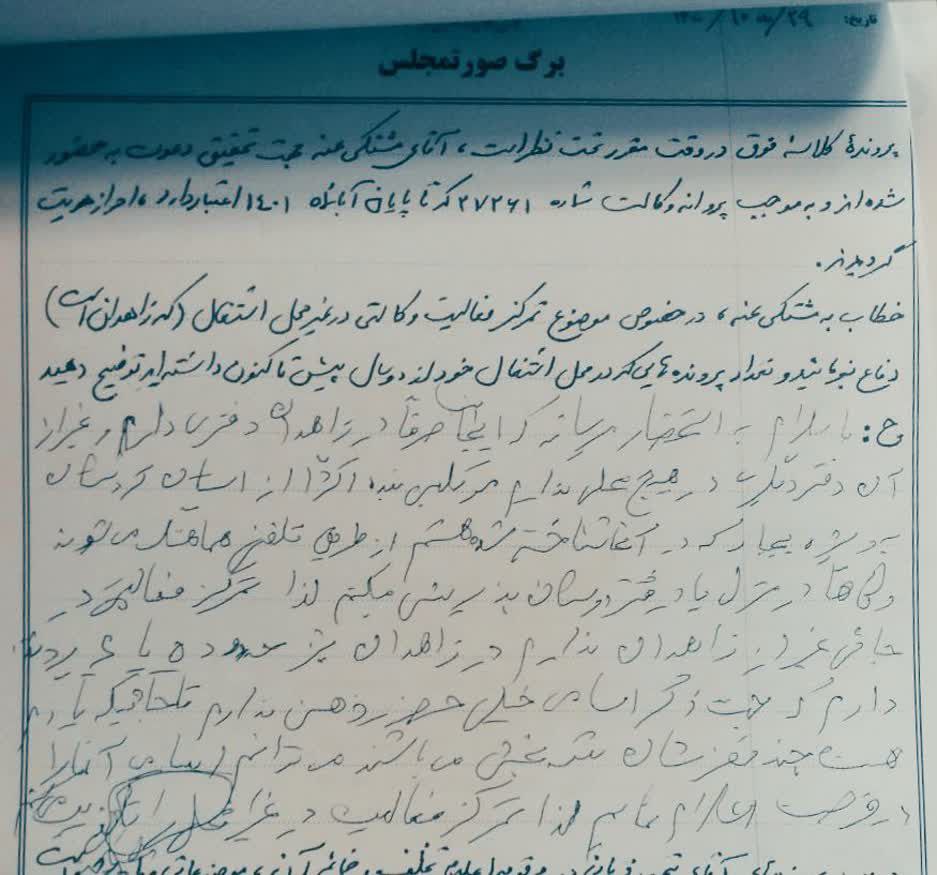 تاریخ:
برگ صورتمجلس
پروندهٔ کلاسهٔ فوق در وقت مقرر تحت نظر است، آقای مشتکی عنه جهت تحقیق دعوت به حضور
شده اند و به موجب پروانه وکالت شماره ۲۷۲۶۱ که تا پایان آبانماه ۱۴۰۱ اعتبار دارد، احراز هویت
گردیدند.
خطاب به مشتکی عنه، در خصوص موضوع تمرکز فعالیت وکالتی در غیر محل اشتغال (که زاهدان است)
دفاع بفرمائید و تعداد پرونده هایی که در محل اشتغال خود از دو سال پیش تا کنون داشته اید توضیح دهید
ج: با سلام به استحضار میرساند که اینجانب صرفاً در زاهدان دفتری دارم و غیر از
آن دفتر دیگری در هیچ محلی ندارم موکلین بنده اکثراً از استان کردستان
به ویژه بیجار که در آنجا شناخته شده هستم از طریق تلفن هماهنگ می شوند
در منزل یا در دفتر دوستان پذیرش میکنم لذا تمرکز فعالیتی در
جائی غیر از زاهدان ندارم در زاهدان نیز حدود ۵ یا ۶ پرونده
دارم که جهت ذکر اسامی خیلی حضور ذهن ندارم تا جائیکه یادم
هست چند نفرشان می باشند می توانم اسامی آنها را
در فرصت اعلام نمایم لذا تمرکز فعالیت در غیر